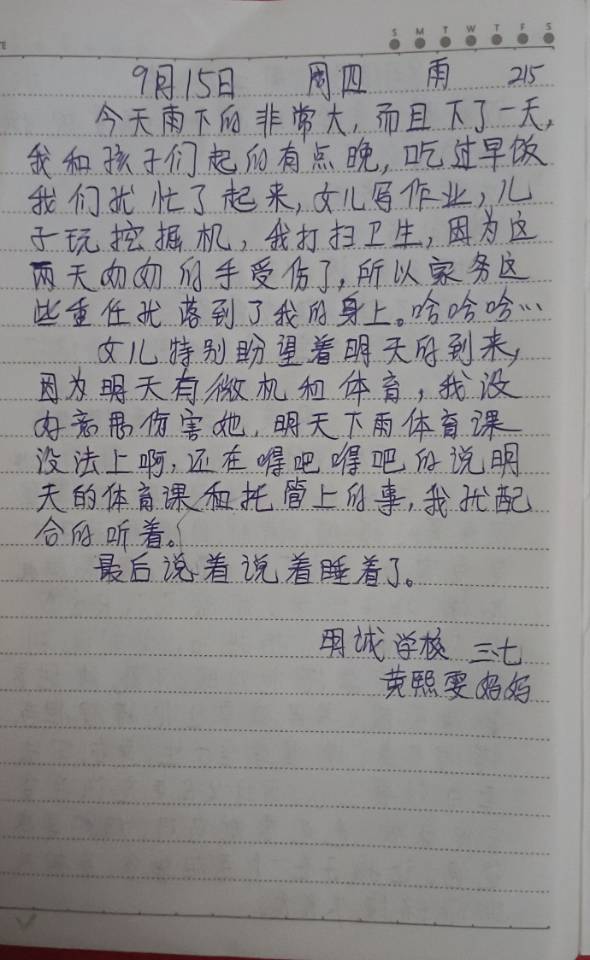 S M T W T F S
9月15日 周四 雨 215
今天雨下的非常大,而且下了一天,
我和孩子们起的有点晚,吃过早饭
我们扰忙了起来,女儿写作业,儿
子玩挖掘机,我打扫卫生,因为这
两天奶奶的手受伤了,所以家务这
些重任扰落到了我的身上。哈哈哈…
女儿特别盼望着明天的到来,
因为明天有微机和体育,我没
好意思伤害她,明天下雨体育课
没法上啊,还在嘚吧嘚吧的说明
天的体育课和托管上的事,我扰配
合的听着。
最后说着说着睡着了。
明诚学校 三.七
黄熙雯妈妈